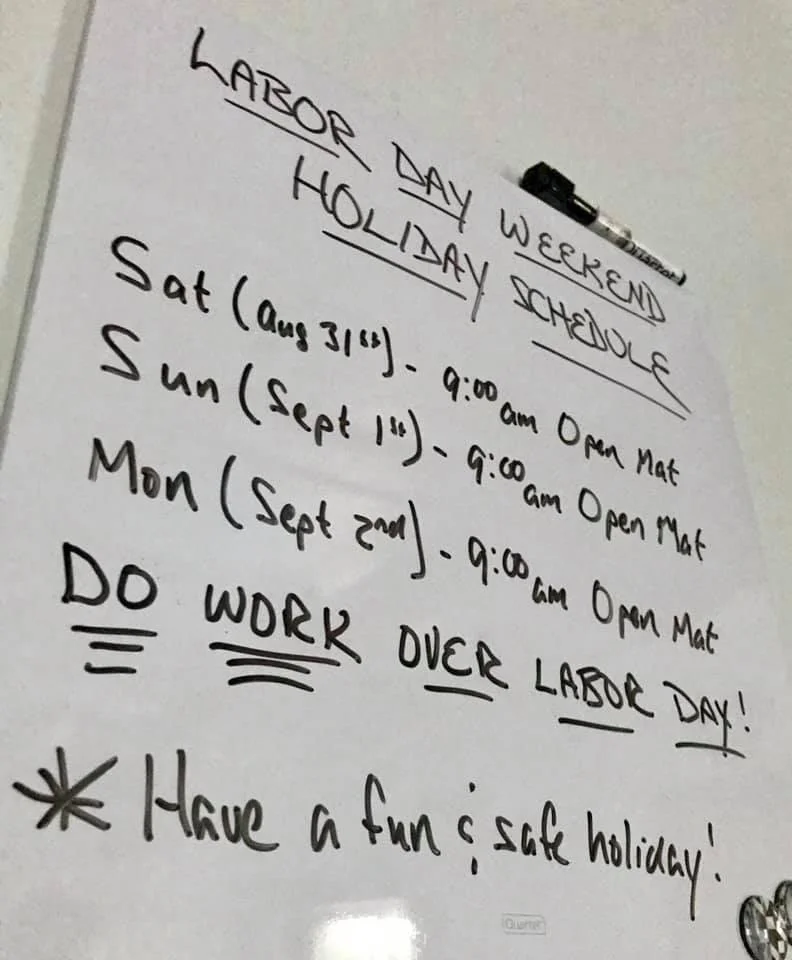 LABOR DAY WEEKEND
HOLIDAY SCHEDULE
Sat (Aug 31st) - 9:00 am Open Mat
Sun (Sept 1st) - 9:00 am Open Mat
Mon (Sept 2nd) - 9:00 am Open Mat
DO WORK OVER LABOR DAY!
* Have a fun & safe holiday!
Quartet